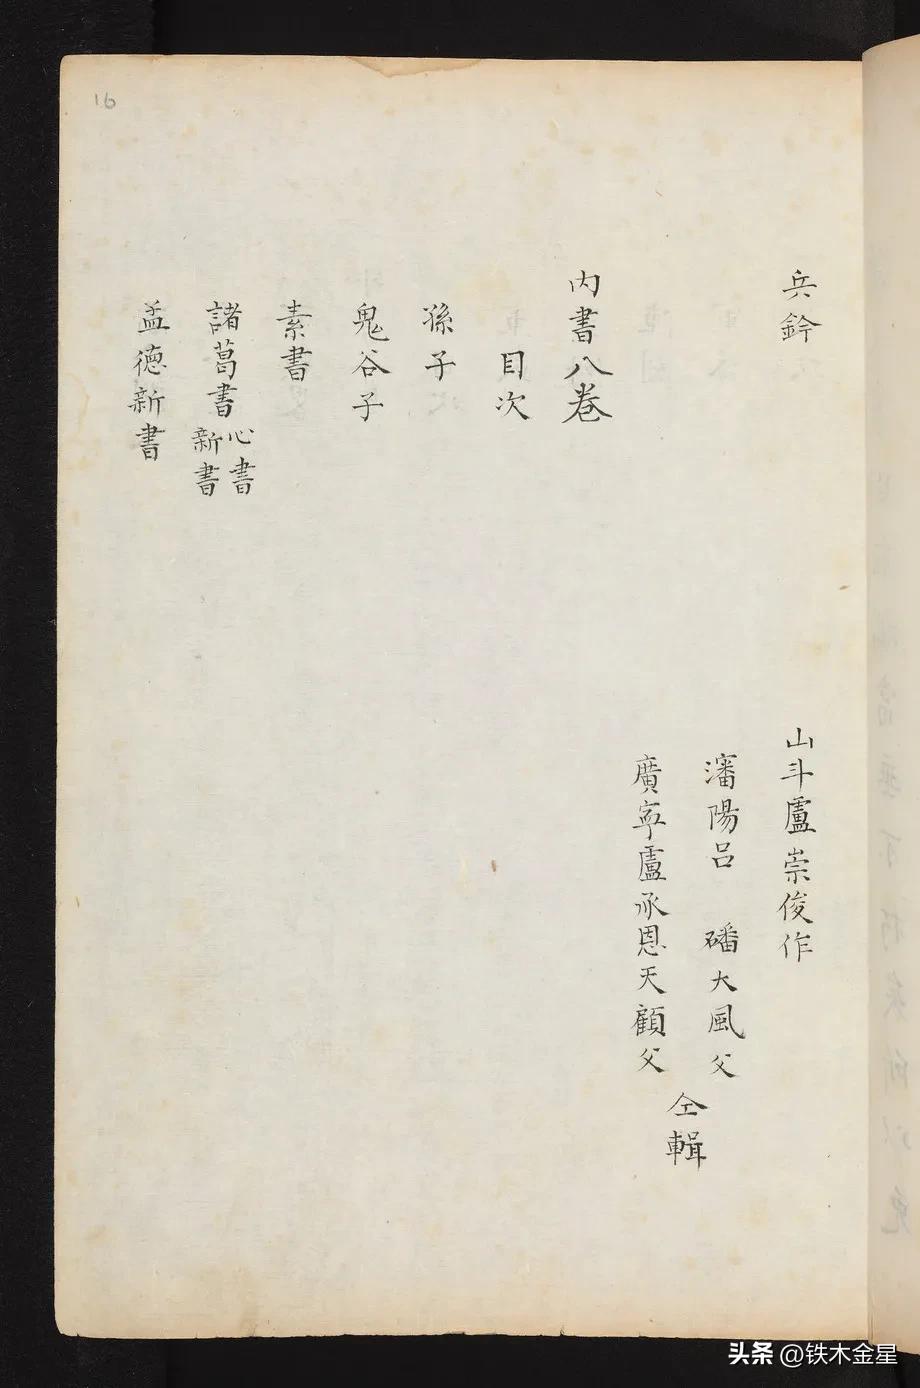 兵鈐
山斗盧崇俊作
瀋陽呂 磻大風父
廣寧盧承恩天顧父
仝輯
內書八卷
目次
孫子
鬼谷子
素書
諸葛書 心書 新書
孟德新書
16
头条 @铁木金星